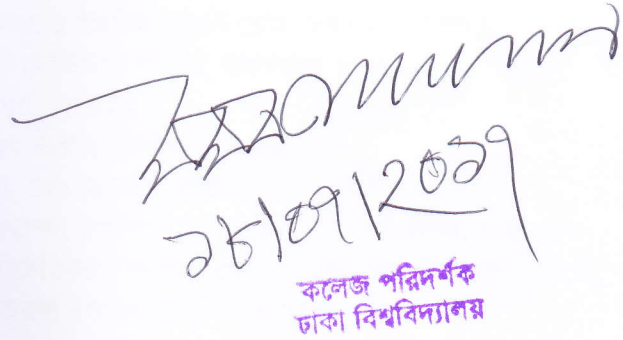 ১৮/০৭/২০১৭
কলেজ পরিদর্শক
ঢাকা বিশ্ববিদ্যালয়